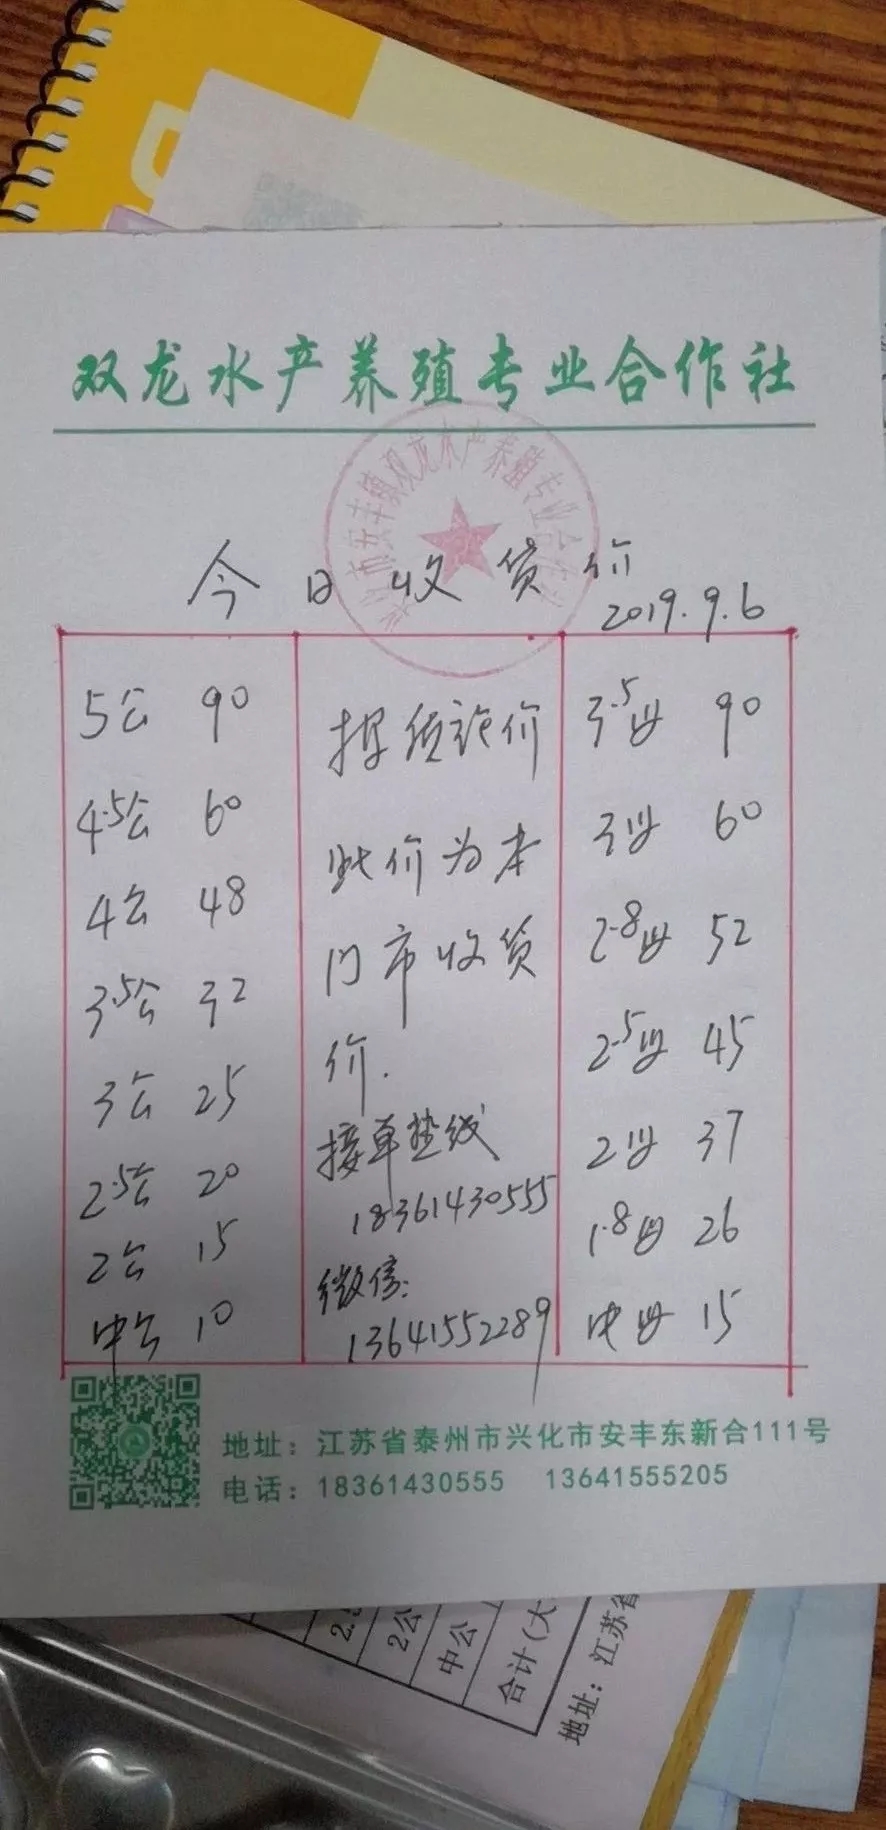 双龙水产养殖专业合作社
今日收货价
2019.9.6
5公 90
4.5公 60
4公 48
3.5公 32
3公 25
2.5公 20
2公 15
中公 10
按质论价
此价为本
门市收货
价.
接单热线
18361430555
微信:
13641552289
3.5母 90
3母 60
2.8母 52
2.5母 45
2母 37
1.8母 26
中母 15
地址：江苏省泰州市兴化市安丰东新合111号
电话：18361430555 13641555205
2公
中公
合计(大
地址：江苏省